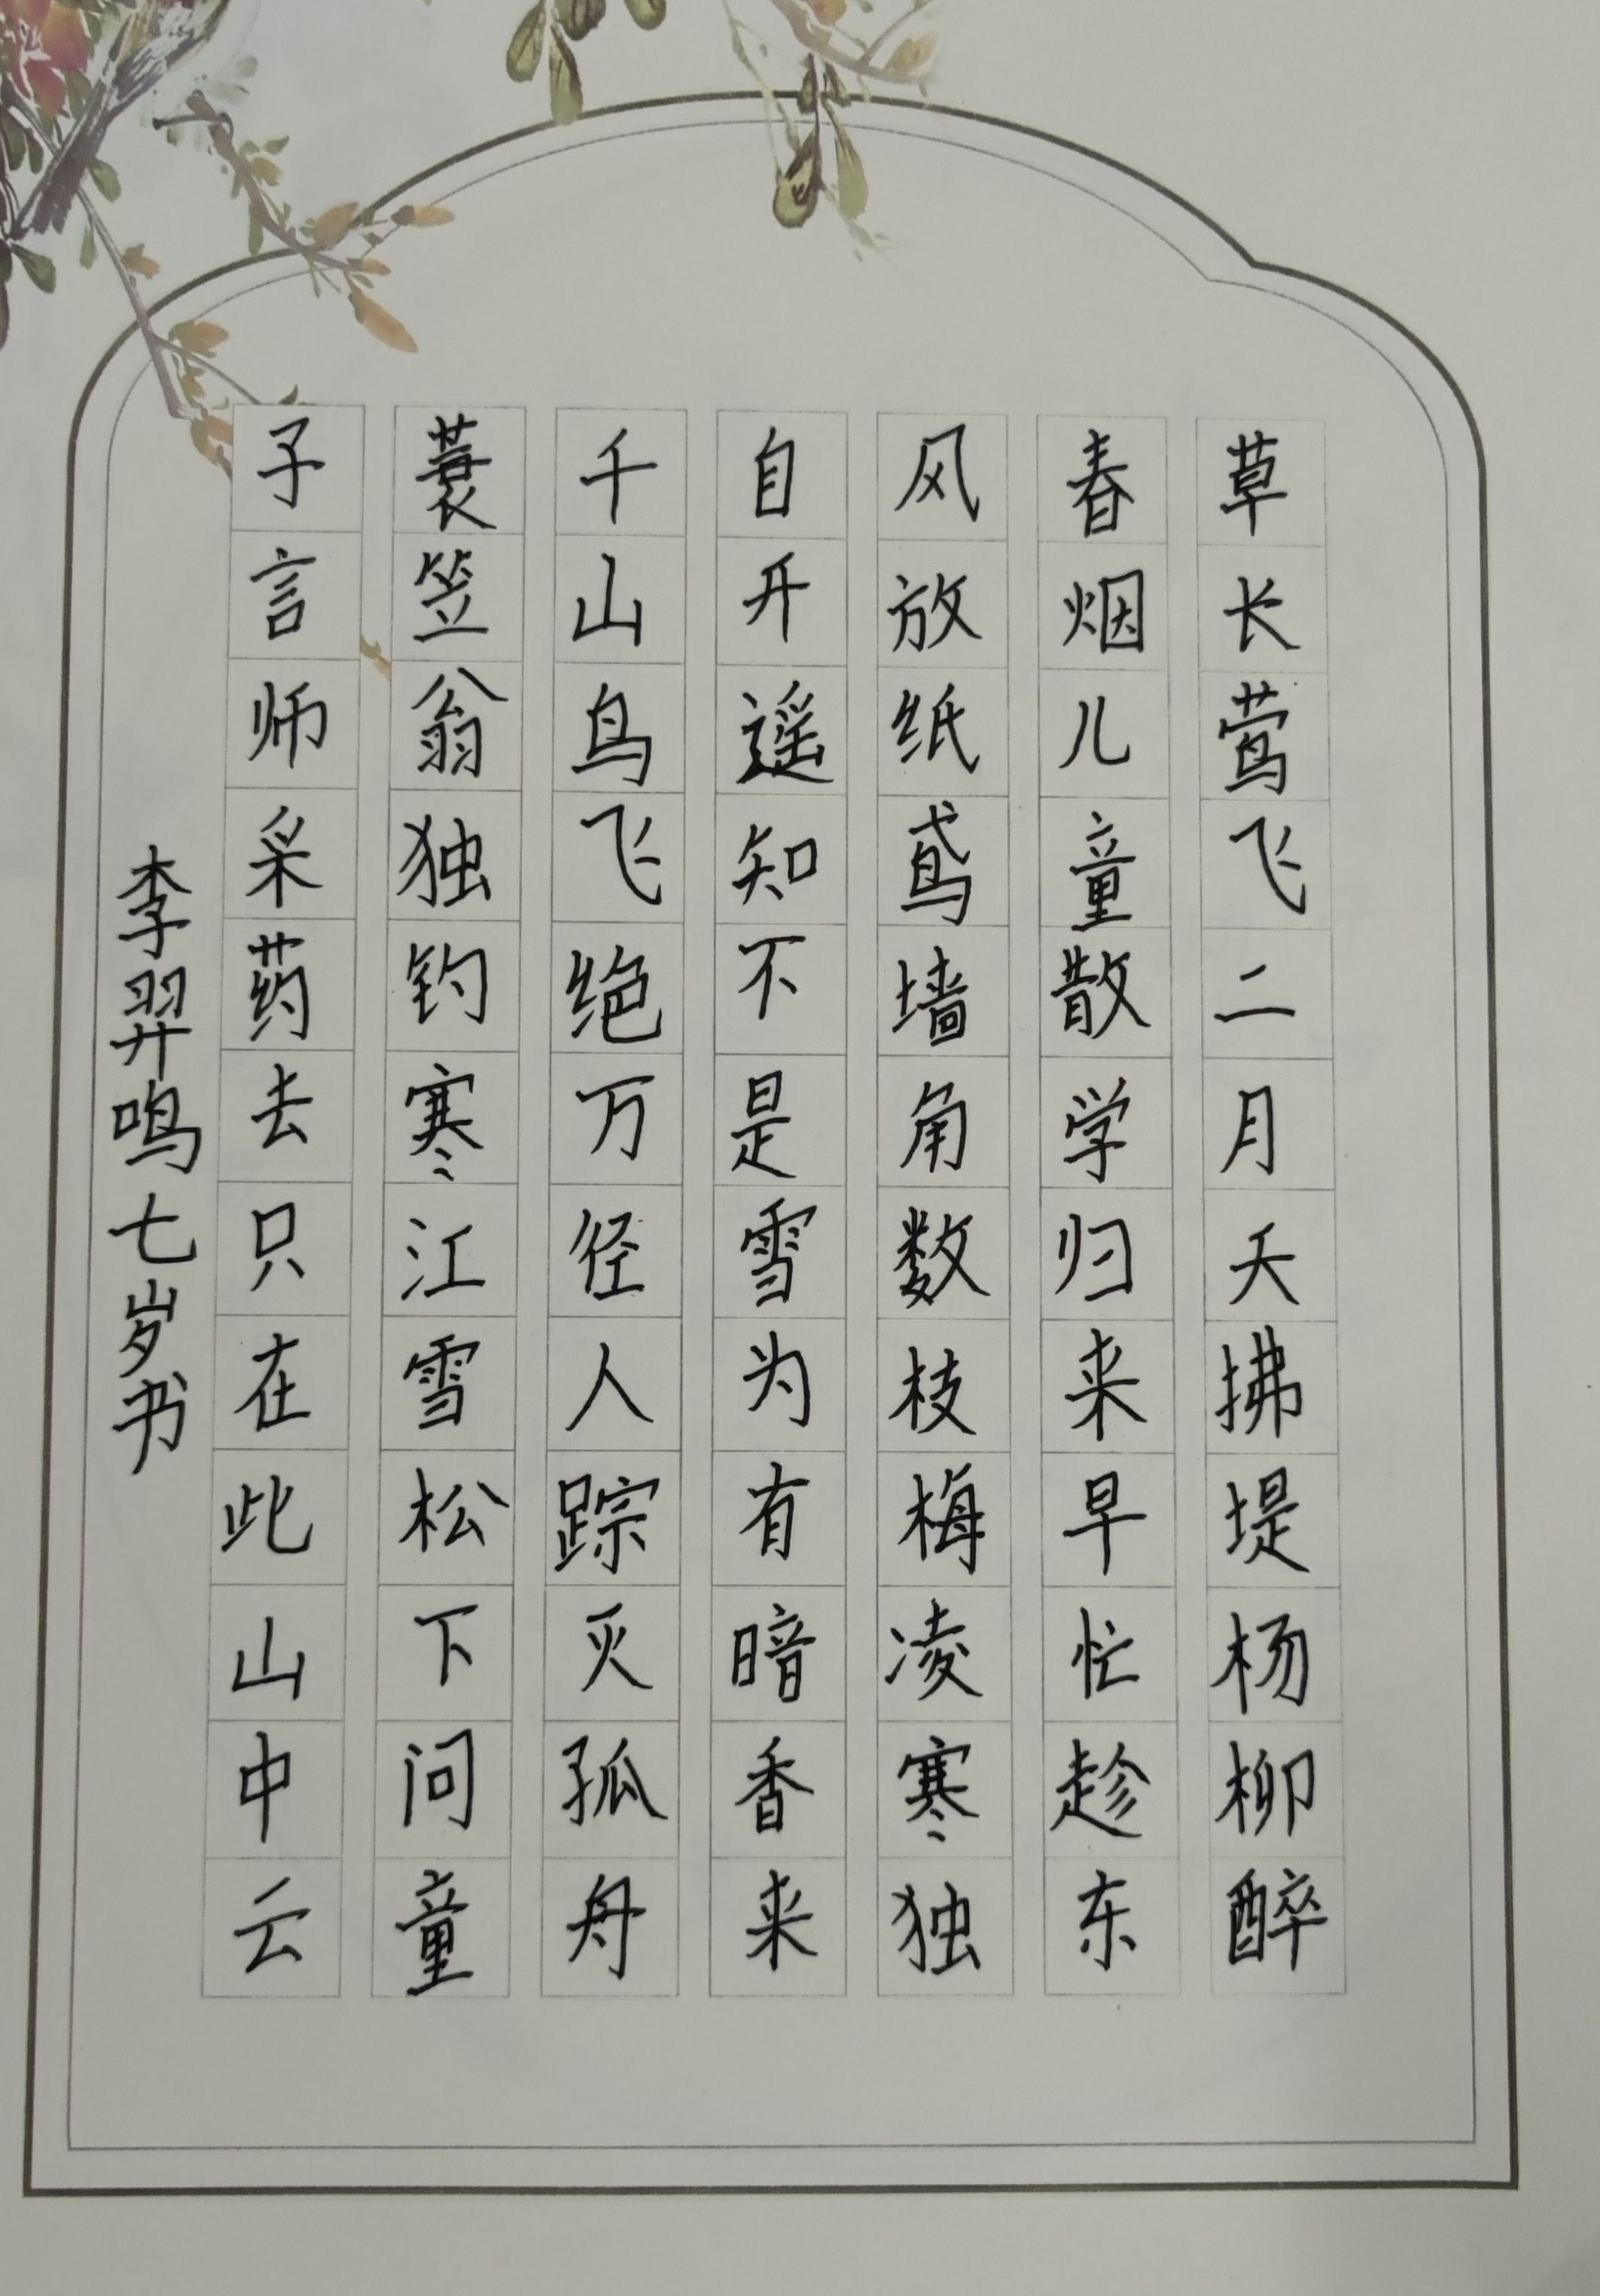 草长莺飞二月天拂堤杨柳醉
春烟儿童散学归来早忙趁东
风放纸鸢墙角数枝梅凌寒独
自开遥知不是雪为有暗香来
千山鸟飞绝万径人踪灭孤舟
蓑笠翁独钓寒江雪松下问童
子言师采药去只在此山中云
李羿鸣七岁书